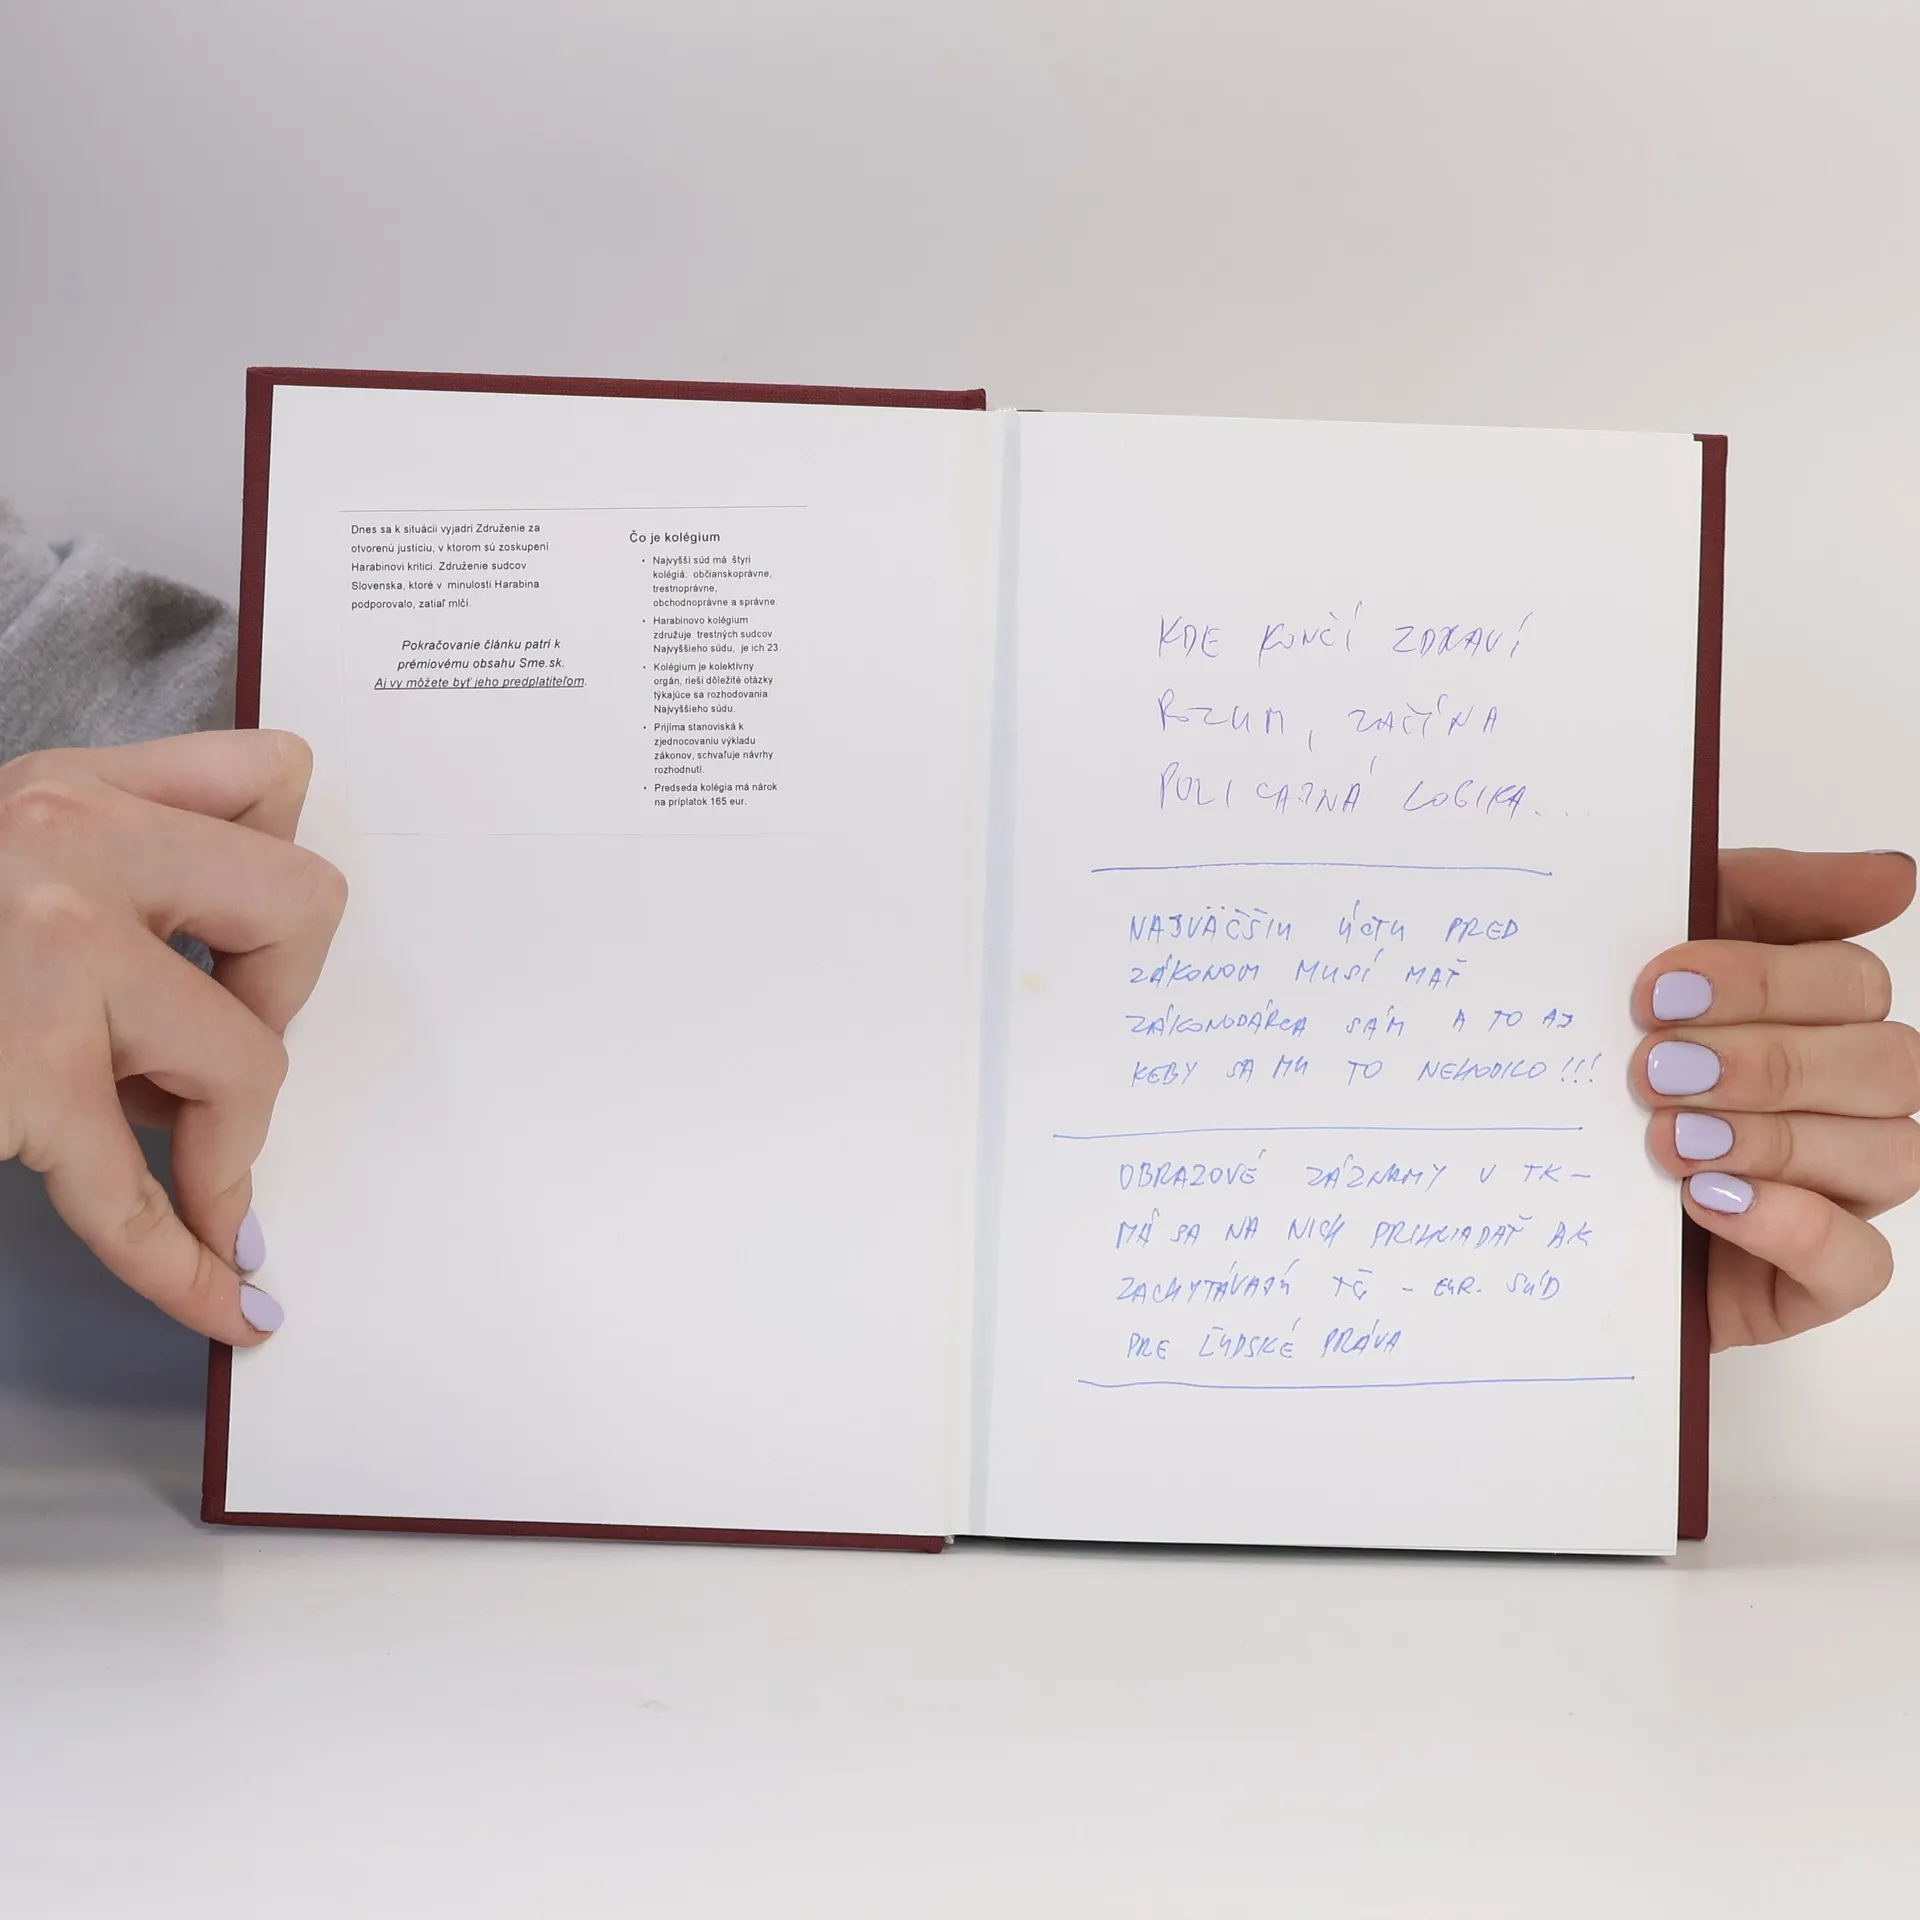 Dnes sa k situácii vyjadrí Združenie za
otvorenú justíciu, v ktorom sú zoskupení
Harabinovi kritici. Združenie sudcov
Slovenska, ktoré v minulosti Harabina
podporovalo, zatiaľ mlčí.
Pokračovanie článku patrí k
prémiovému obsahu Sme.sk.
Aj vy môžete byť jeho predplatiteľom.
Čo je kolégium
• Najvyšší súd má štyri
kolégiá: občianskoprávne,
trestnoprávne,
obchodnoprávne a správne.
• Harabinovo kolégium
združuje trestných sudcov
Najvyššieho súdu, je ich 23.
• Kolégium je kolektívny
orgán, rieši dôležité otázky
týkajúce sa rozhodovania
Najvyššieho súdu.
• Prijíma stanoviská k
zjednocovaniu výkladu
zákonov, schvaľuje návrhy
rozhodnutí.
• Predseda kolégia má nárok
na príplatok 165 eur.
KDE KONČÍ ZDRAVÍ
ROZUM, ZAČÍNA
POLICAJNÁ LOGIKA...
NAJVÄČŠIU ÚCTU PRED
ZÁKONOM MUSÍ MAŤ
ZÁKONODÁRCA SÁM A TO AJ
KEBY SA MU TO NEHODILO!!!
OBRAZOVÉ ZÁZNAMY V TK –
MÁ SA NA NICH PRIHLIADAŤ AK
ZACHYTÁVAJÚ TČ – EUR. SÚD
PRE ĽUDSKÉ PRÁVA